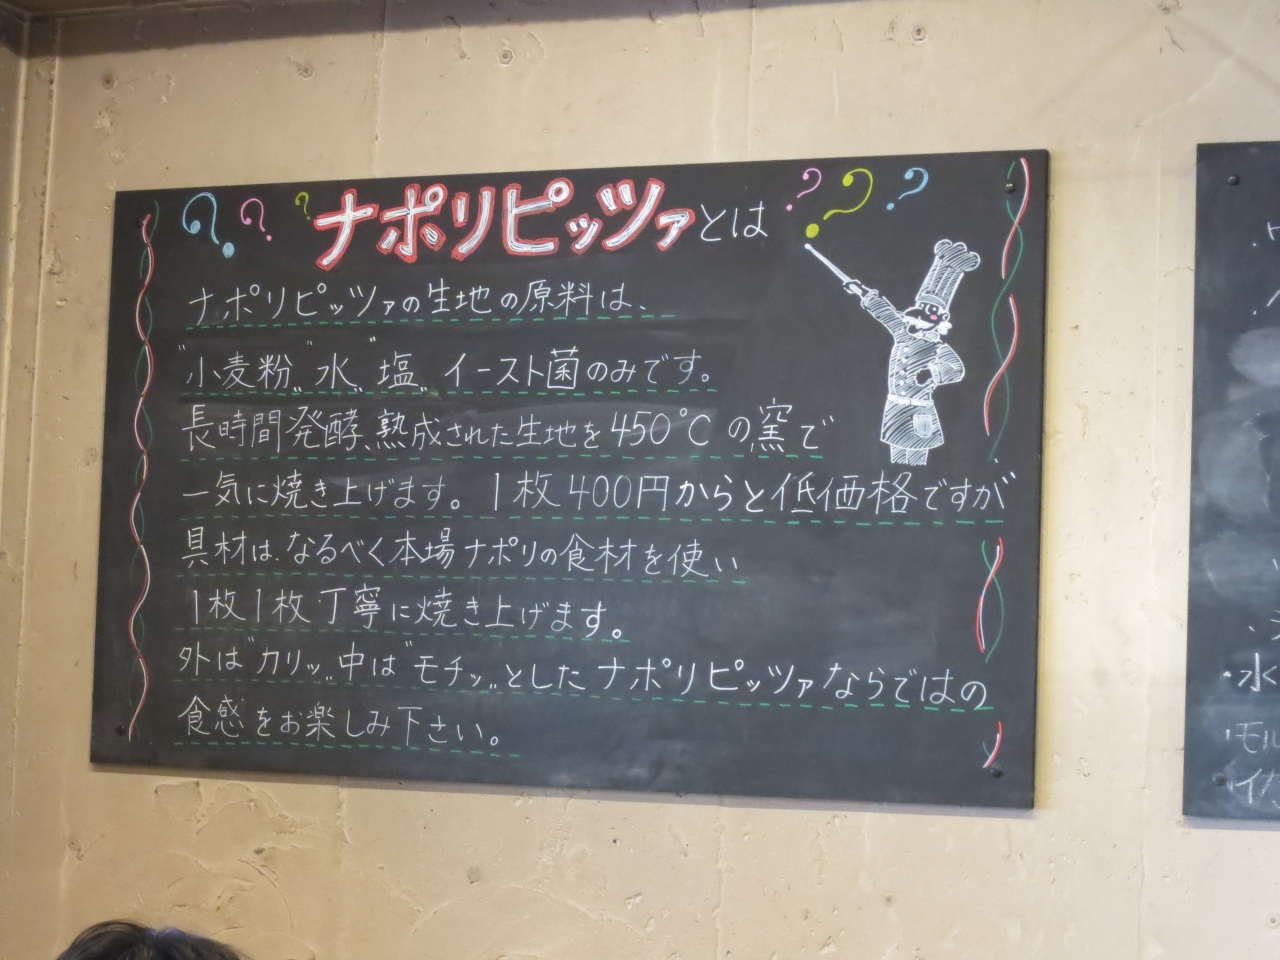 ???ナポリピッツァとは???
ナポリピッツァの生地の原料は、
"小麦粉" "水" "塩" イースト菌のみです。
長時間発酵、熟成された生地を450℃の窯で
一気に焼き上げます。1枚400円からと低価格ですが
具材は、なるべく本場ナポリの食材を使い
1枚1枚丁寧に焼き上げます。
外は"カリッ"中は"モチッ"としたナポリピッツァならではの
食感をお楽しみ下さい。
・水